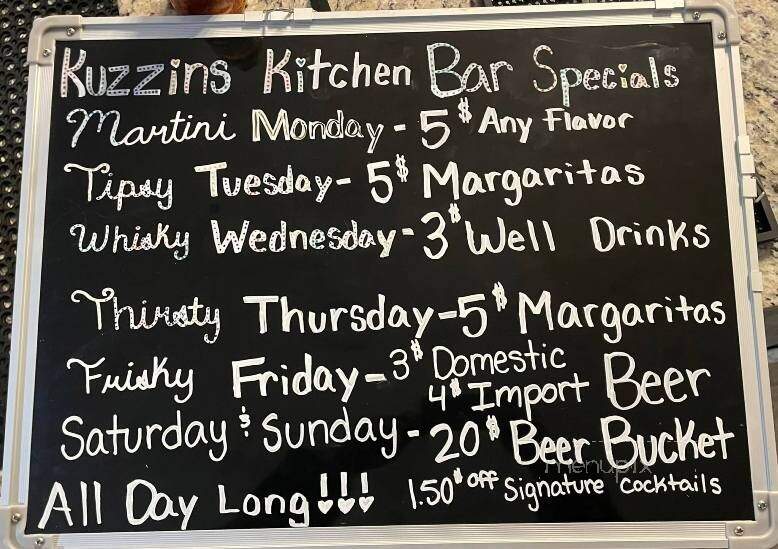 Kuzzins Kitchen Bar Specials
Martini Monday - 5$ Any Flavor
Tipsy Tuesday - 5$ Margaritas
Whisky Wednesday - 3$ Well Drinks
Thirsty Thursday - 5$ Margaritas
Frisky Friday - 3$ Domestic
4$ Import Beer
Saturday & Sunday - 20$ Beer Bucket
menupix
All Day Long!!! 1.50$ off Signature Cocktails